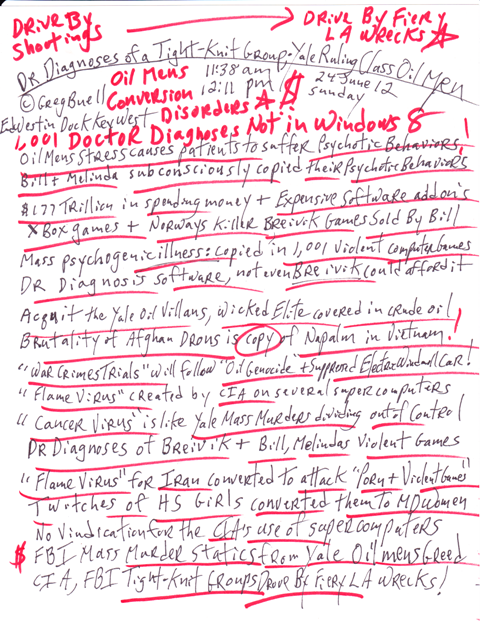 Drive By Shootings
Drive By Fiery LA Wrecks
Dr Diagnoses of a Tight-Knit Group: Yale Ruling Class Oil Men
Oil Mens Conversion Disorders $
11:38 am
12:11 pm
24 June 12
Sunday
© Greg Buell
Ed Westin Dock Key West
1,001 Doctor Diagnoses Not in Windows 8
Oil Mens Stress causes patients to suffer Psychotic Behaviors,!
Bill + Melinda subconsciously copied their Psychotic Behaviors
$1.77 Trillion in spending money + Expensive software addon's
X Box games + Norways Killer Breivik Games Sold By Bill
Mass psychogenic illness: copied in 1,001 Violent computer Games
DR Diagnosis Software, not even Breivik could afford it
Acquit the Yale Oil Villans, Wicked Elite covered in crude oil
Brutality of Afghan Drons is copy of Napalm in Vietnam!
"War Crimes Trials" will follow "Oil Genocide + Suppresed ElectricWindmillCar!
"Flame Virus" created by CIA on several super computers
"Cancer Virus" is like Yale Mass Murders dividing out of control
DR Diagnoses of Breivik + Bill, Melindas Violent Games
"Flame Virus" for Iran converted to attack "Porn + Violent Games"
Twitches of HS Girls converted them to MD women
No Vindication for the CIA's use of supercomputers
$ FBI Mass Murder Statics from Yale Oil mens Greed
CIA, FBI Tight-Knit Groups Drove By Fiery LA Wrecks!